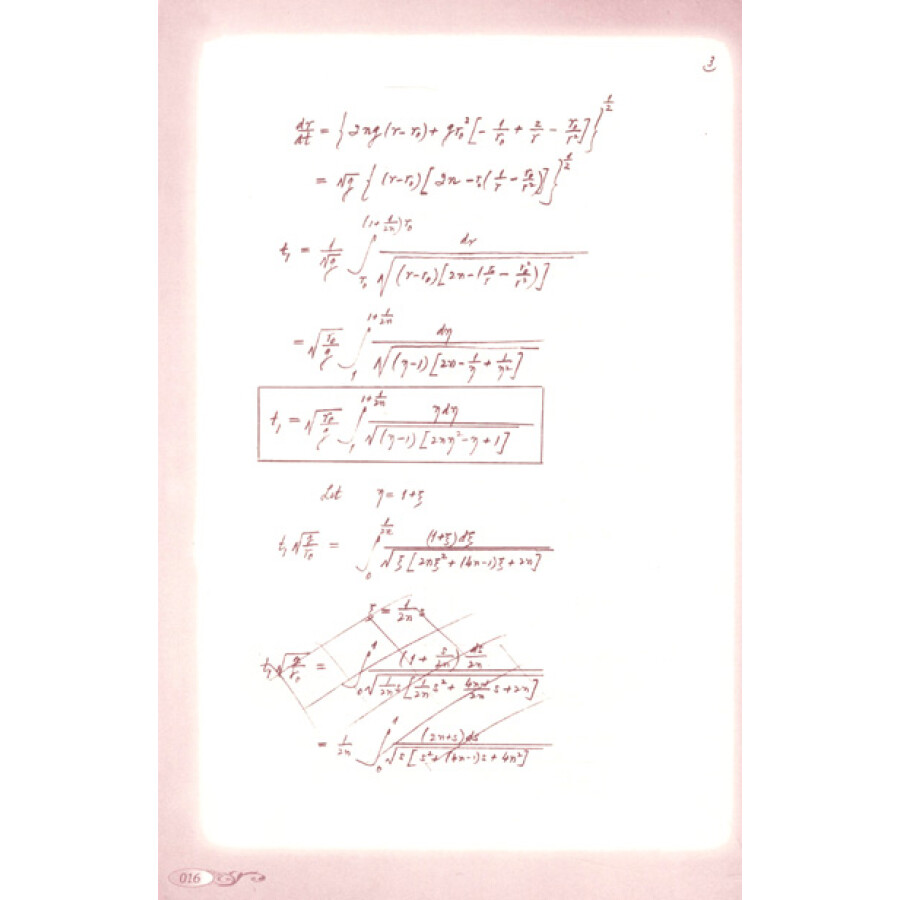 3
dr/dt = {2ng(r-r₀) + gr₀²[-1/r₀ + 2/r - r₀/r²]}^(1/2)
= √g {(r-r₀)[2n - r₀(1/r - r₀/r²)]}^(1/2)
t₁ = 1/√g ∫_(r₀)^((1+1/2n)r₀) dr/√((r-r₀)[2n-(r₀/r - r₀²/r²)])
= √(r₀/g) ∫_1^(1+1/2n) dη/√((η-1)[2n - 1/η + 1/η²])
t₁ = √(r₀/g) ∫_1^(1+1/2n) ηdη/√((η-1)[2nη²-η+1])
Let η = 1+ξ
t₁√(g/r₀) = ∫_0^(1/2n) (1+ξ)dξ/√(ξ[2nξ²+(4n-1)ξ+2n])
ξ = 1/2n s
t₁√(g/r₀) = ∫_0^1 (1 + s/2n) ds/2n / √(1/2n s[1/2n s² + (4n-1)/2n s + 2n])
= 1/2n ∫_0^1 (2n+s)ds/√(s[s²+(4n-1)s+4n²])
016